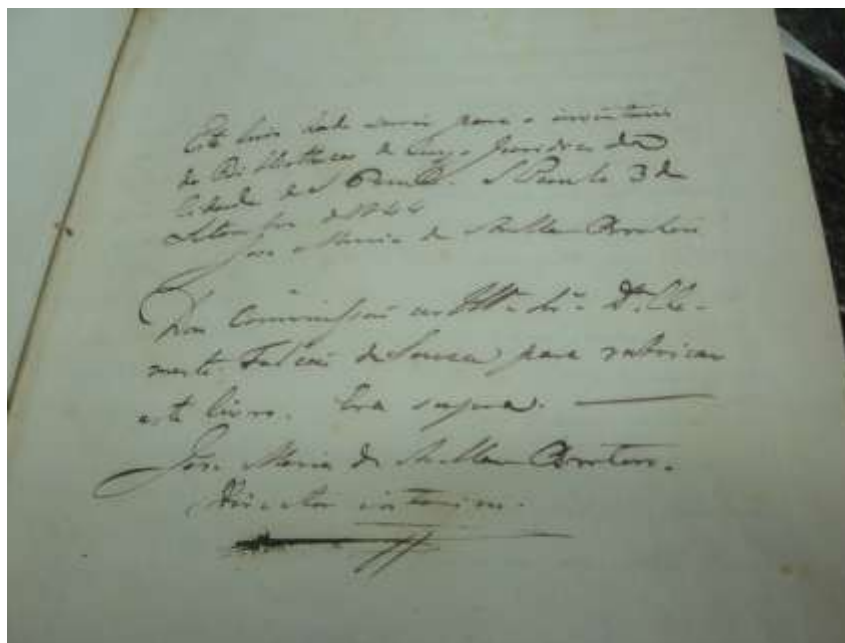 Este livro hade servir para o inventario
da Bibliotheca do Curso Juridico da
Cidade de S. Paulo. S. Paulo 3 de
Setembro de 1844
José Maria de Avellar Brotero
Dou Commissão ao Illmo. Snr. Dr. Cle-
mente Falcão de Souza para rubricar
este livro. Era supra.
José Maria de Avellar Brotero.
Director interino.